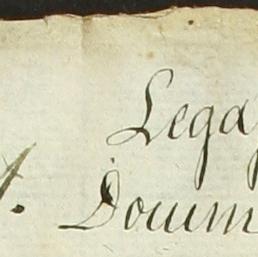 Lega
A. Docum